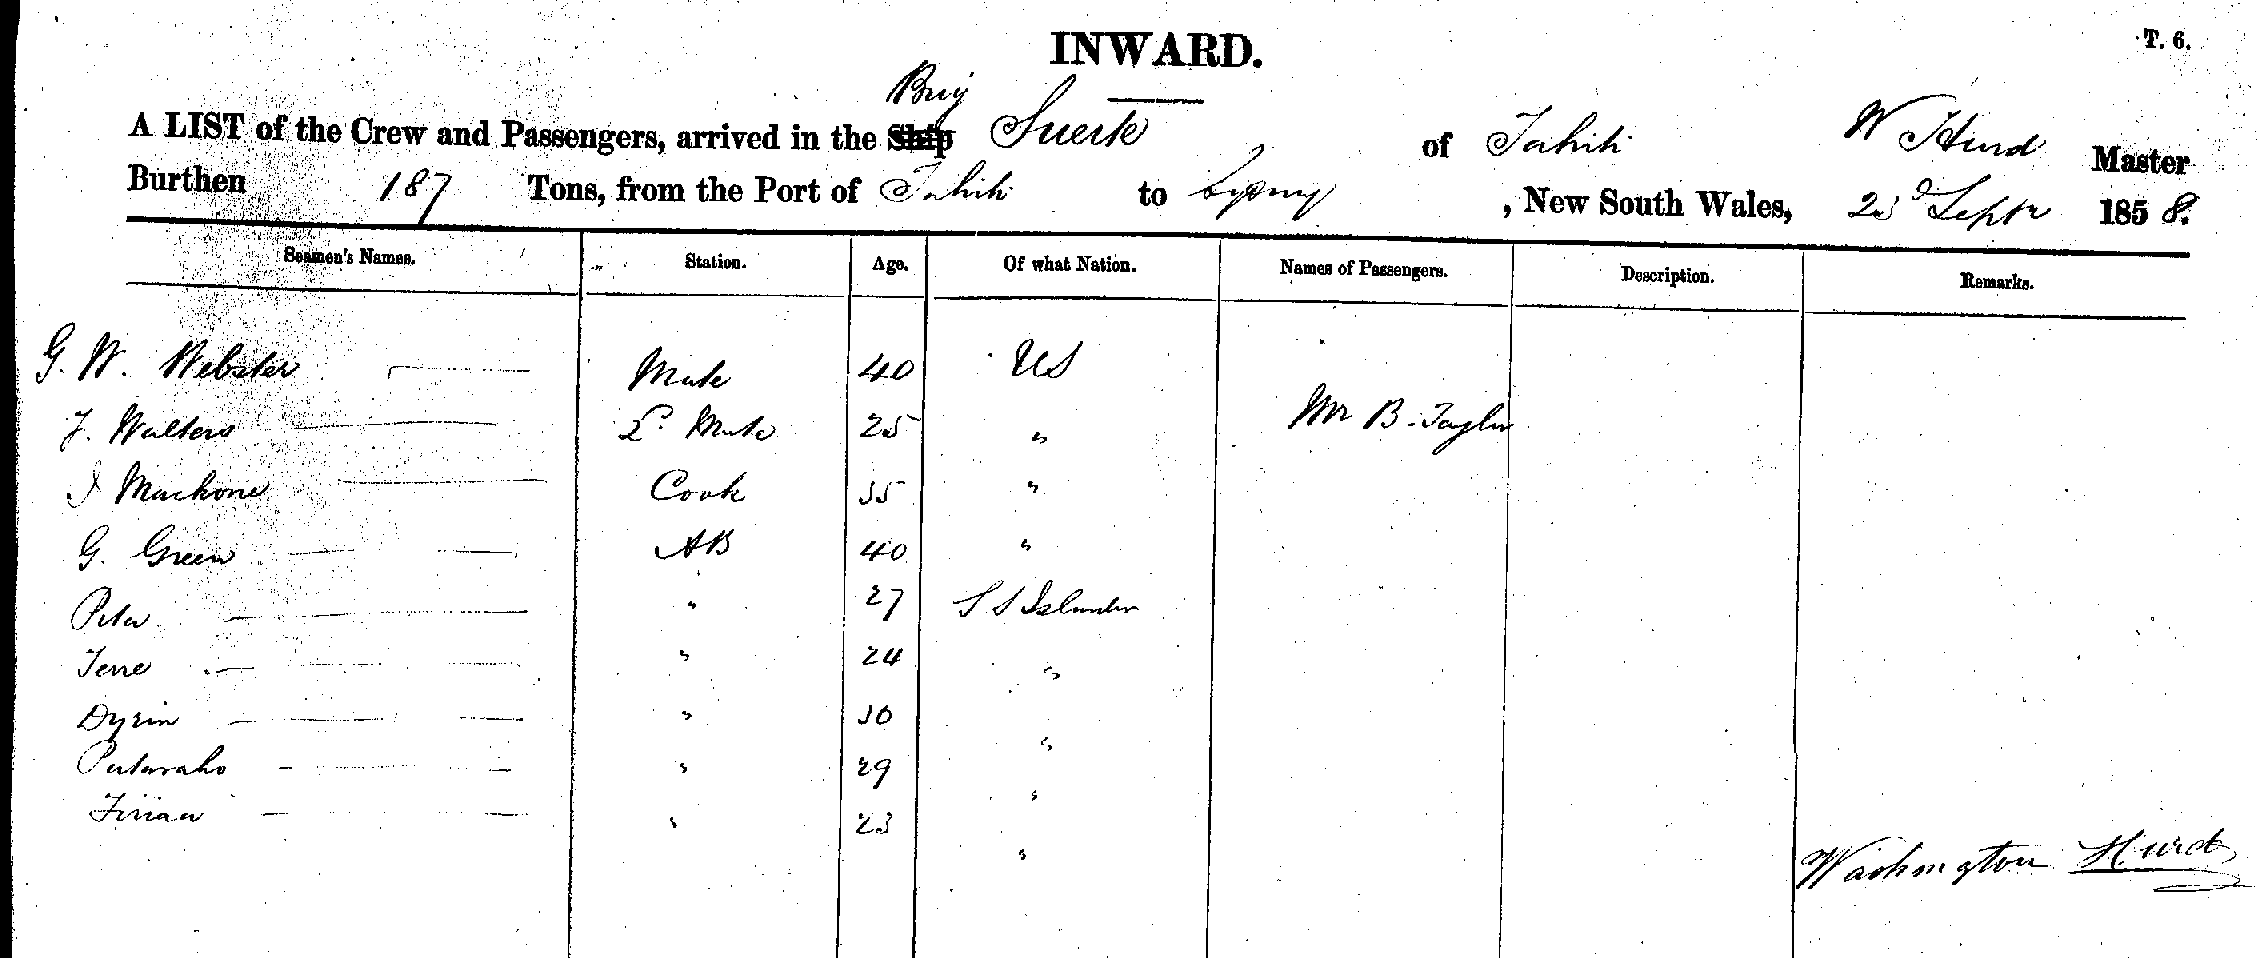 INWARD.
T. 6.
Brig
A LIST of the Crew and Passengers, arrived in the Ship Suerte of Tahiti W Hurd Master
Burthen 187 Tons, from the Port of Tahiti to Sydney, New South Wales, 23d Septr 1858.
Seamen's Names. Station. Age. Of what Nation. Names of Passengers. Description. Remarks.
G. W. Webster Mate 40 US
J. Walters 2d Mate 25 " Mr B. Taylor
J Mackone Cook 35 "
G. Green AB 40 "
Peter " 27 S S Islander
Terre " 24 "
Dyrin " 30 "
" 29 "
" 23 "
Washington Hurd